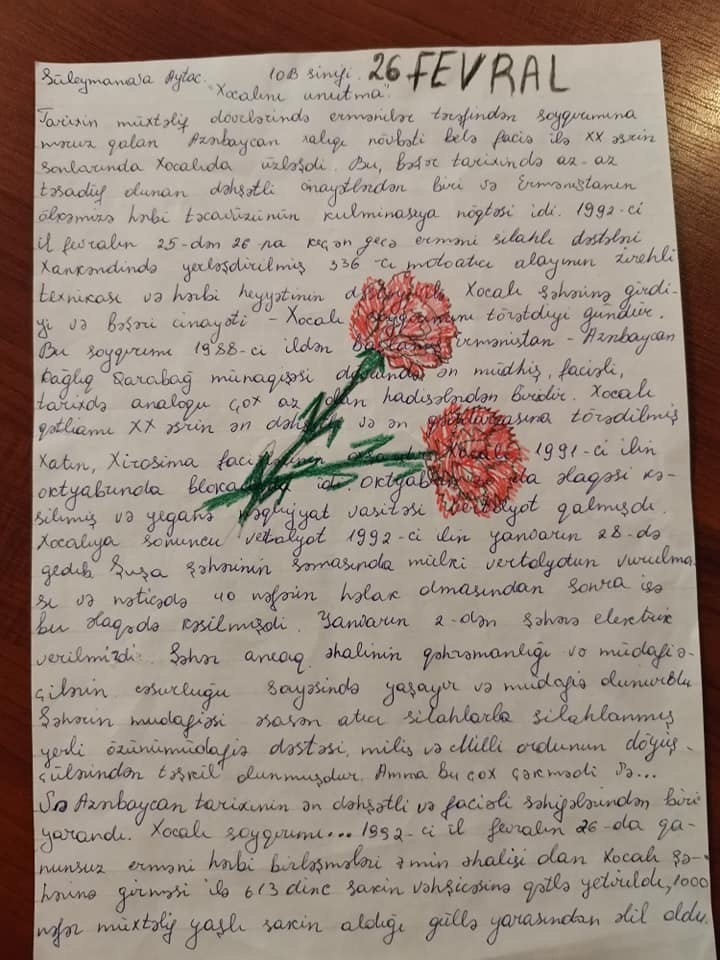 Süleymanova Aytac. 10B sinifi. 26 FEVRAL
"Xocalını unutma".
Tarixin müxtəlif dövrlərində ermənilər tərəfindən soyqırımına
məruz qalan Azərbaycan xalqı növbəti belə faciə ilə XX əsrin
sonlarında Xocalıda üzləşdi. Bu, bəşər tarixində az-az
təsadüf olunan dəhşətli cinayətlərdən biri və Ermənistanın
ölkəmizə hərbi təcavüzünün kulminasiya nöqtəsi idi. 1992-ci
il fevralın 25-dən 26-na keçən gecə erməni silahlı dəstələri
Xankəndində yerləşdirilmiş 336-cı motoatıcı alayının zirehli
texnikası və hərbi heyyətinin ilə Xocalı şəhərinə girdi-
yi və bəşəri cinayəti - Xocalı soyqırımını törətdiyi gündür.
Bu soyqırımı 1988-ci ildən Ermənistan - Azərbaycan
Dağlıq Qarabağ münaqişəsi ən müdhiş, faciəli,
tarixdə analoqu çox az olan hadisələrdən biridir. Xocalı
qətliamı XX əsrin ən və ən törədilmiş
Xatın, Xirosima Xocalı 1991-ci ilin
oktyabrında idi. əlaqəsi kə-
silmiş və yeganə nəqliyyat vasitəsi vertolyot qalmışdı.
Xocalıya sonuncu vetalyot 1992-ci ilin yanvarın 28-də
gedib. Şuşa şəhərinin səmasında mülki vertolyotun vurulma-
sı və nəticədə 40 nəfərin həlak olmasından sonra isə
bu əlaqədə kəsilmişdi. Yanvarın 2-dən şəhərə elektrik
verilmirdi. Şəhər ancaq əhalinin qəhrəmanlığı və müdafiə-
çilərin cəsurluğu sayəsində yaşayır və müdafiə olunurdu.
Şəhərin mudafiəsi əsasən atıcı silahlarla silahlanmış
yerli özünümüdafiə dəstəsi, milis və Milli ordunun döyüş-
çülərindən təşkil olunmuşdur. Amma bu çox çəkmədi və...
Və Azərbaycan tarixinin ən dəhşətli və faciəli səhifələrindən biri
yarandı. Xocalı soyqırımı... 1992-ci il fevralın 26-da qa-
nunsuz erməni hərbi birləşmələri 7 min əhalisi olan Xocalı şə-
hərinə girməsi ilə 613 dinc sakin vəhşicəsinə qətlə yetirildi, 1000
nəfər müxtəlif yaşlı sakin aldığı güllə yarasından əlil oldu.